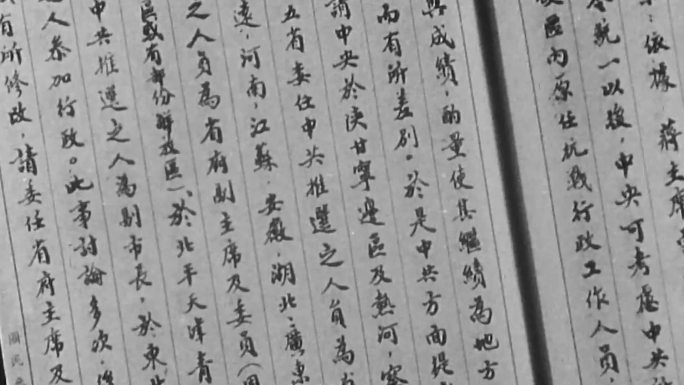 依據 蔣主席
令統一以後，中央可考慮中央
區內原任抗戰行政工作人員
與成績，酌量使其繼續為地方
而有所差別。於是中共方面提
請中央於陝甘寧邊區及熱河，察
五省委任中共推選之人員為
遠，河南，江蘇，安徽，湖北，廣東
之人員為省府副主席及委員（因
區或有部份解放區），於北平天津青
中共推選之人為副市長，於東北
之人參加行政。此事討論多次，後
有所修改，請委任省府主席及
國民